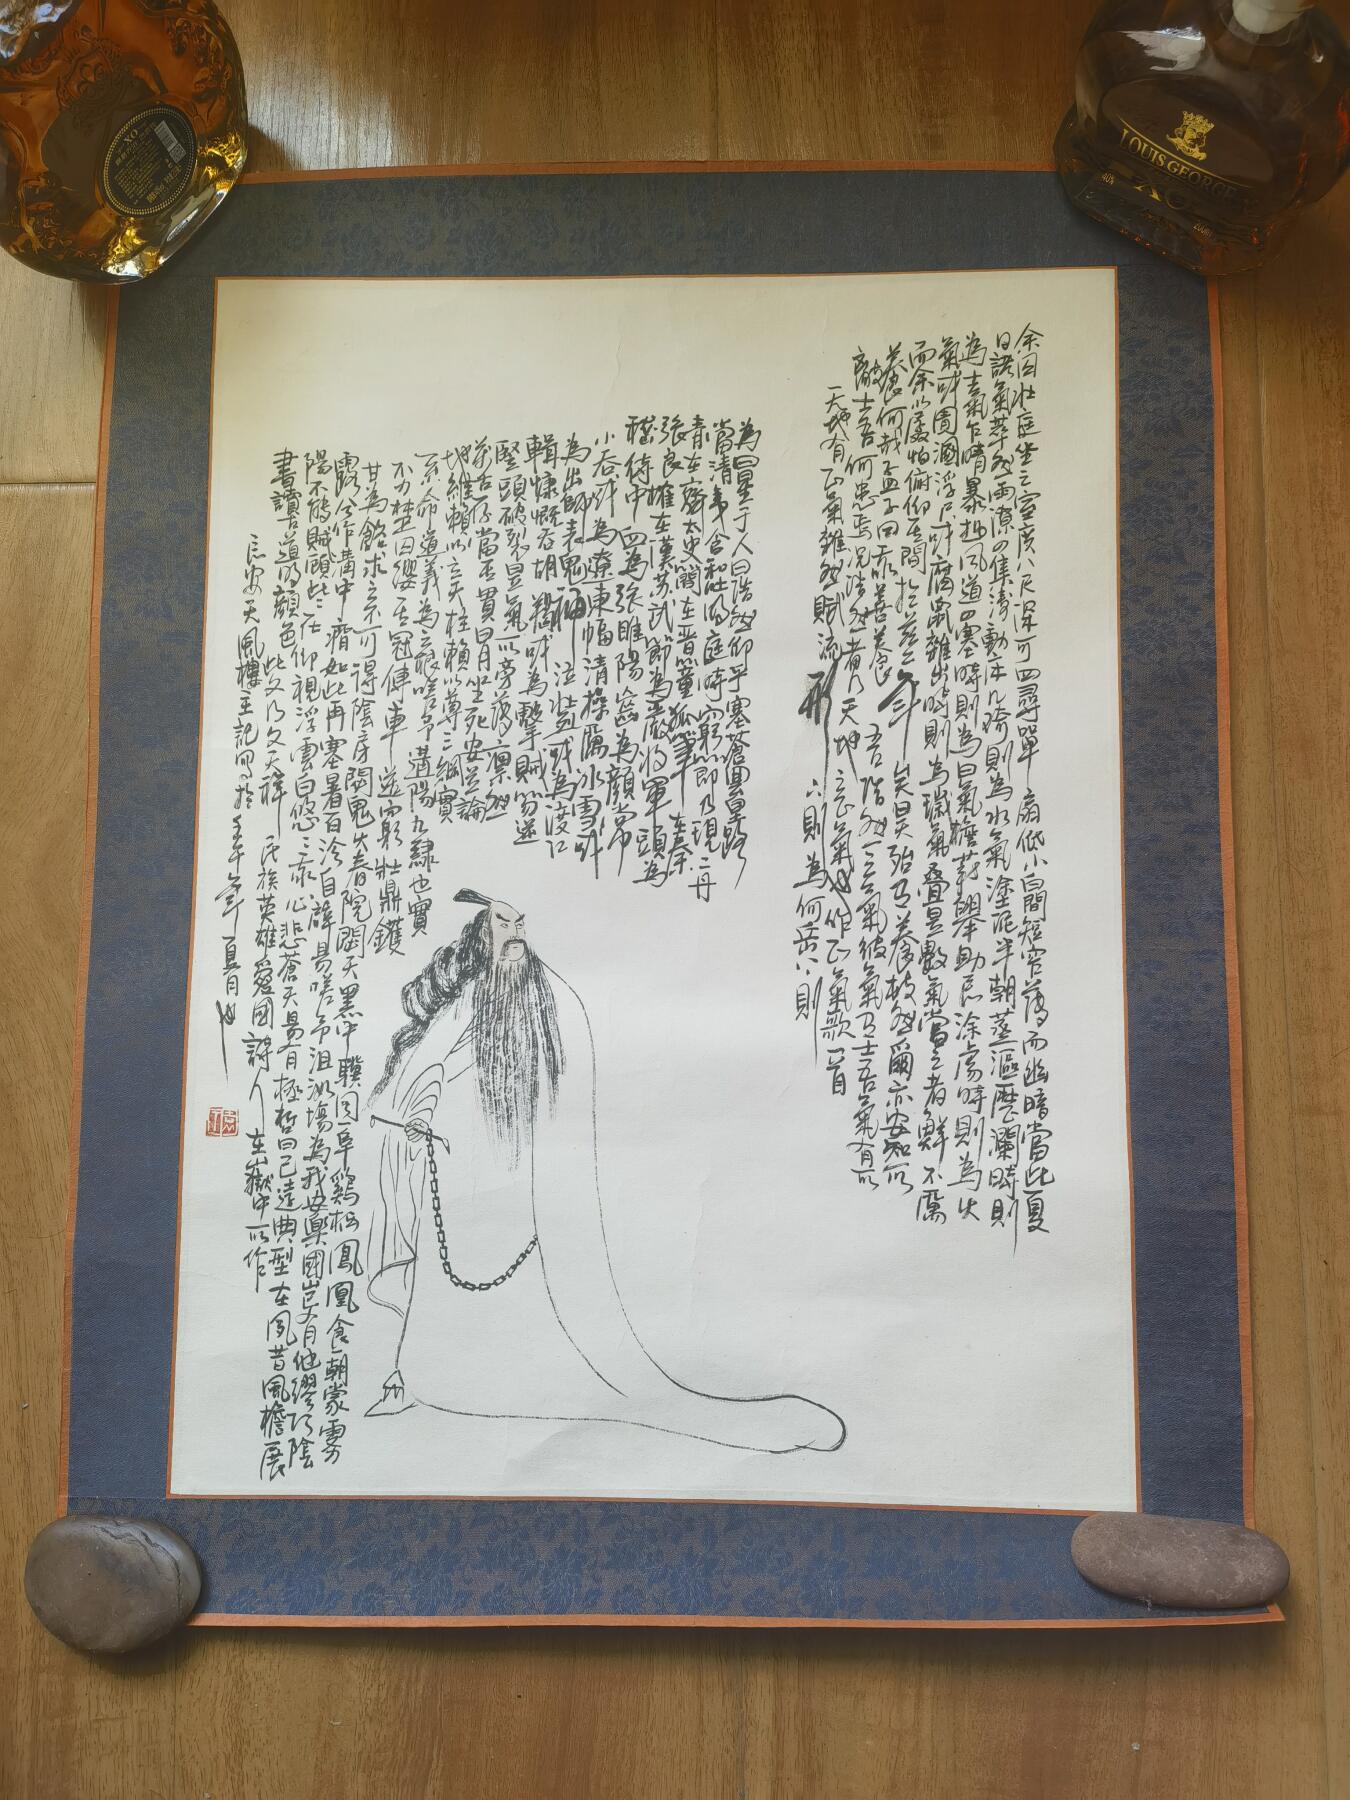 余囚北庭坐之室廣八尺深可四尋單扇低小白間短窄薄而幽暗當此夏
日諸氣萃然雨潦四集濤動床几時則為水氣塗泥半朝蒸漚歷瀾時則
為土氣乍晴暴熱風道四塞時則為日氣檐薪爨助長涂虐時則為火
氣或圊溷浮尸或腐鼠雜出時則為瑞氣疊是數氣當之者鮮不厲
而余以孱怕俯仰其間於茲二年矣是殆有養故然爾亦安知所
養為何哉孟子曰我善養吾浩然之氣彼氣有七吾氣有一所
敵七吾何患焉況浩然者乃天地之正氣也作正氣歌一首
天地有正氣雜然賦流形下則為何岳上則
為日星于人曰浩然仰乎塞蒼冥皇路
當清夷含和吐明庭時窮節乃現一一丹
青在齊太史簡在晉董狐筆在秦
張良椎在漢蘇武節為嚴將軍頭為
嵇侍中血為張睢陽齒為顏常
山舌或為遼東帽清操厲冰雪或
為出師表鬼神泣壯烈或為渡江
楫慷慨吞胡羯或為擊賊笏逆
豎頭破裂是氣所旁薄凜然
萬古存當其貫日月生死安足論
地維賴以立天柱賴以尊三綱實
系命道義為之根嗟予遘陽九隸也實
不力楚囚纓其冠傳車送窮北鼎鑊
甘為飴求之不可得陰房闃鬼火春院閟天黑牛驥同一皁雞棲鳳凰食一朝蒙霧
露分作溝中瘠如此再寒暑百沴自辟易嗟乎沮洳場為我安樂國豈有他繆巧陰
陽不能賊顧此耿耿在仰視浮雲白悠悠我心悲蒼天曷有極哲日已遠典型在夙昔風檐展
書讀古道明顏色此文乃文天祥民族英雄愛國詩人在嶽中所作
長安天風樓主記寫於壬午年夏月也
XO
LOUIS GEORGE
XO
40%